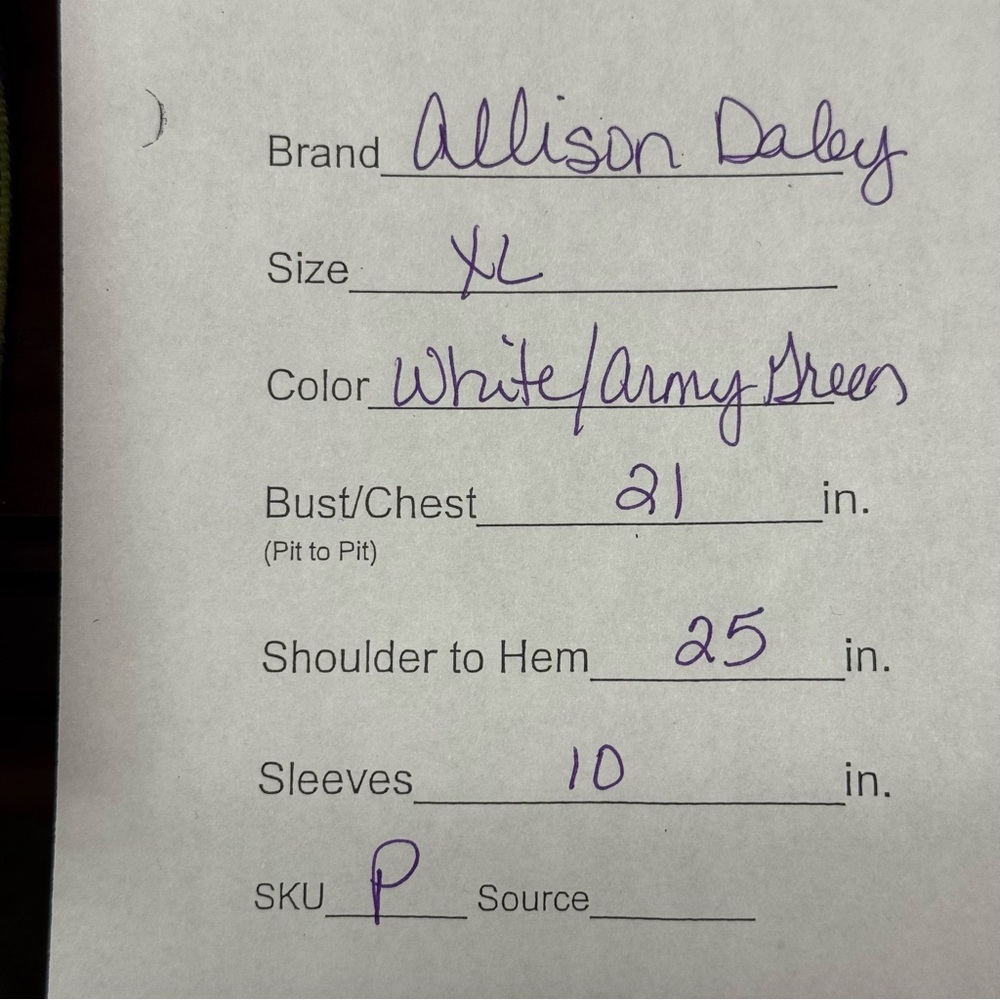 Brand Allison Daley
Size XL
Color White/Army Green
Bust/Chest 21 in.
(Pit to Pit)
Shoulder to Hem 25 in.
Sleeves 10 in.
SKU P Source